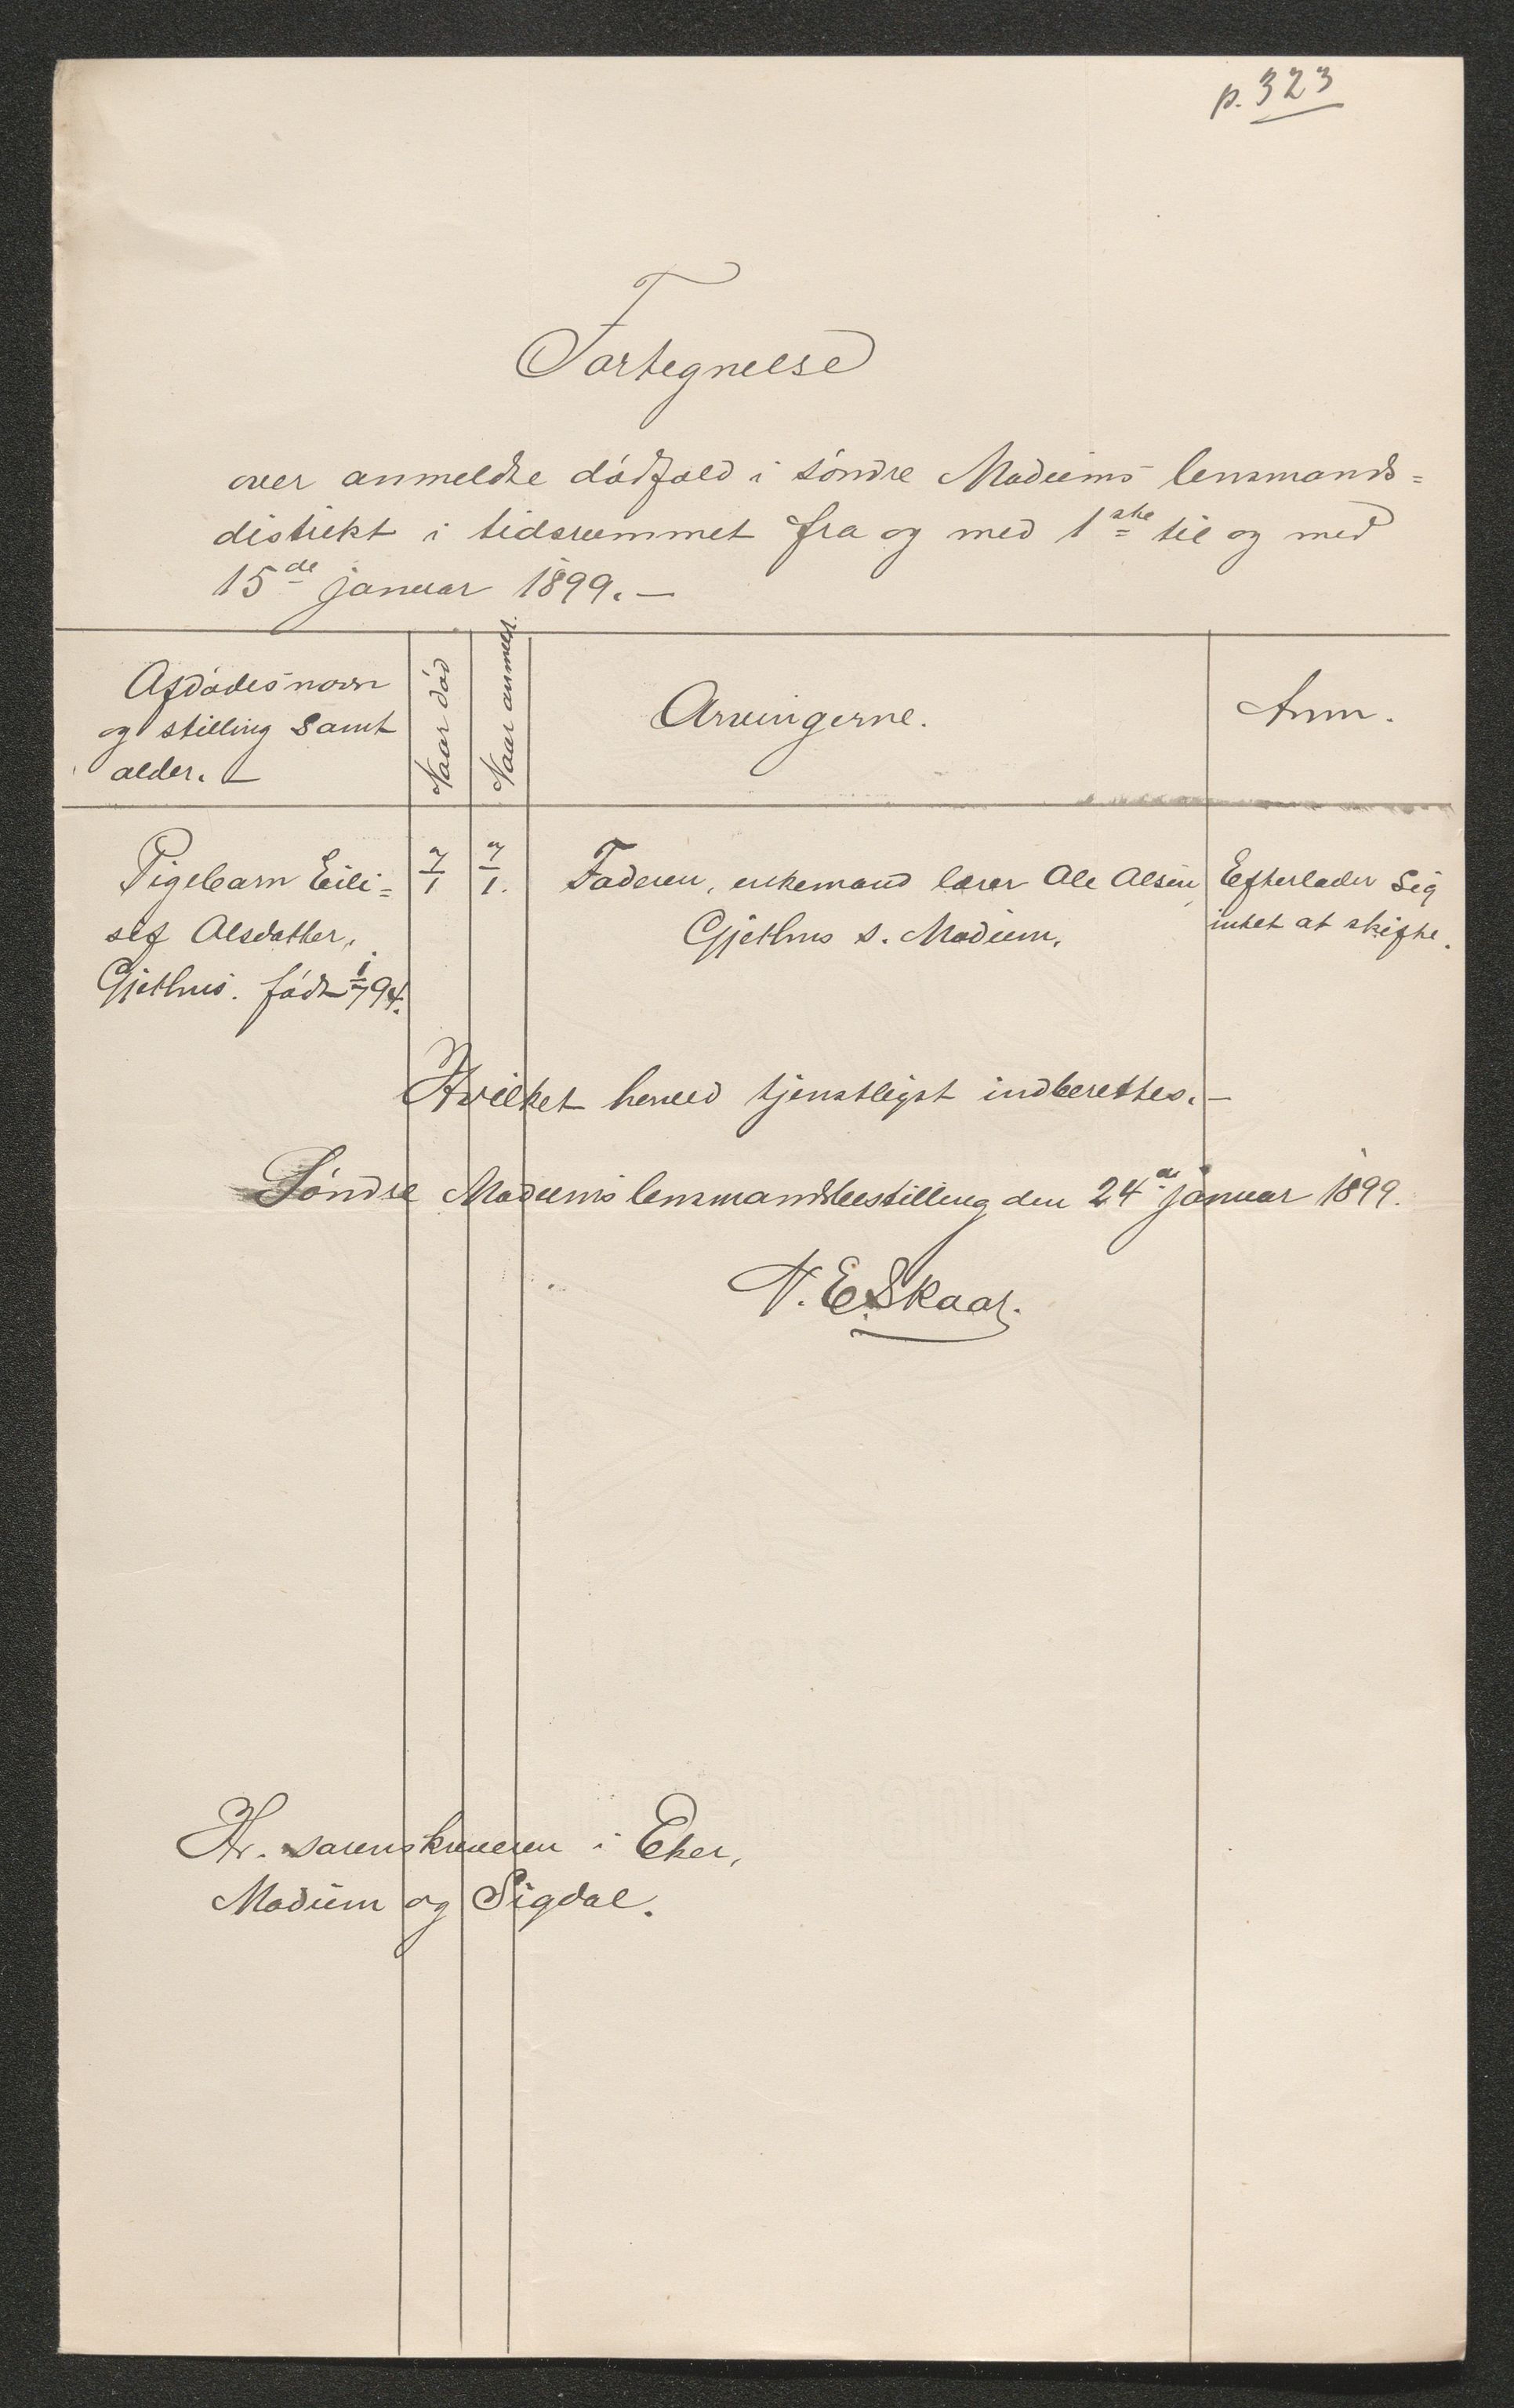 p. 323
Fortegnelse
over anmeldte dødfald i søndre Modums lensmands=
distrikt i tidsrummet fra og med 1ste til og med
15de januar 1899.—
Afdødes navn
og stilling samt
alder.—
Naar død
Naar anmeldt.
Arvingerne.
Anm.
Pigebarn Eili=
sef Olsdatter,
Gjethus. født 1/7 94.
7/1
7/1.
Faderen, enkemand lærer Ole Olsen,
Gjethus s. Modum.
Efterlader sig
intet at skifte.
Hvilket herved tjenstligst indberettes.—
Søndre Modums lensmandsbestilling den 24de januar 1899.
N. E. Skaar.
Hr. sorenskriveren i Eker,
Modum og Sigdal.